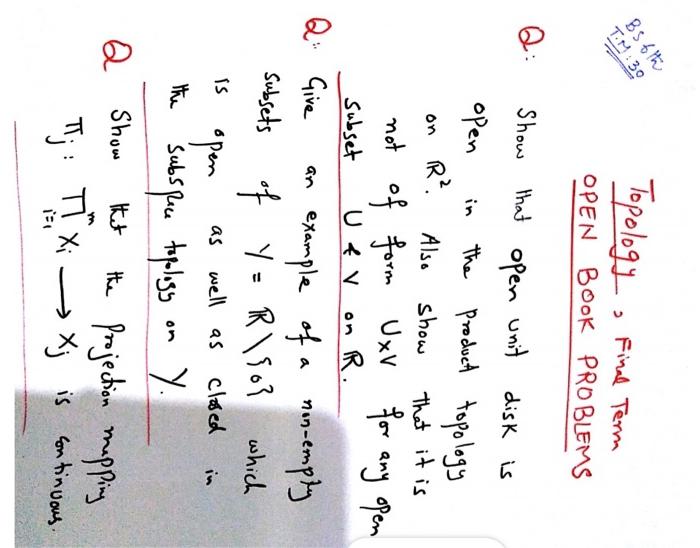 BS 6th
T.M:30
Topology, Final Term
OPEN BOOK PROBLEMS
Q: Show that open unit disk is
open in the product topology
on ℝ². Also show that it is
not of form U×V for any open
subset U & V on ℝ.
Q: Give an example of a non-empty
subsets of Y = ℝ \ {0} which
is open as well as closed in
the subspace topology on Y.
Q Show that the projection mapping
πj: ∏ᵐᵢ₌₁ Xi → Xj is continuous.